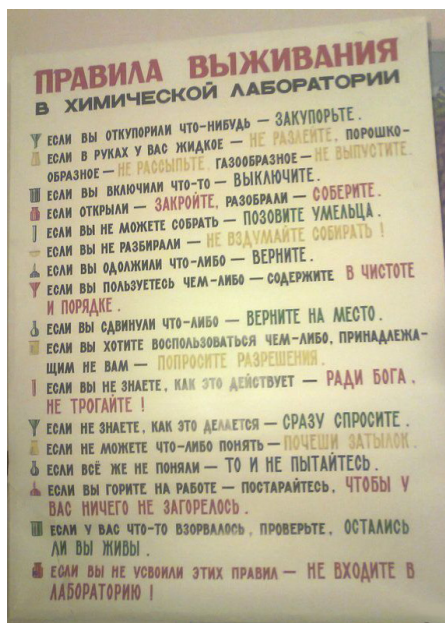 ПРАВИЛА ВЫЖИВАНИЯ
В ХИМИЧЕСКОЙ ЛАБОРАТОРИИ
ЕСЛИ ВЫ ОТКУПОРИЛИ ЧТО-НИБУДЬ — ЗАКУПОРЬТЕ.
ЕСЛИ В РУКАХ У ВАС ЖИДКОЕ — НЕ РАЗЛЕЙТЕ, ПОРОШКО-
ОБРАЗНОЕ — НЕ РАССЫПЬТЕ, ГАЗООБРАЗНОЕ — НЕ ВЫПУСТИТЕ.
ЕСЛИ ВЫ ВКЛЮЧИЛИ ЧТО-ТО — ВЫКЛЮЧИТЕ.
ЕСЛИ ОТКРЫЛИ — ЗАКРОЙТЕ, РАЗОБРАЛИ — СОБЕРИТЕ.
ЕСЛИ ВЫ НЕ МОЖЕТЕ СОБРАТЬ — ПОЗОВИТЕ УМЕЛЬЦА.
ЕСЛИ ВЫ НЕ РАЗБИРАЛИ — НЕ ВЗДУМАЙТЕ СОБИРАТЬ!
ЕСЛИ ВЫ ОДОЛЖИЛИ ЧТО-ЛИБО — ВЕРНИТЕ.
ЕСЛИ ВЫ ПОЛЬЗУЕТЕСЬ ЧЕМ-ЛИБО — СОДЕРЖИТЕ В ЧИСТОТЕ
И ПОРЯДКЕ.
ЕСЛИ ВЫ СДВИНУЛИ ЧТО-ЛИБО — ВЕРНИТЕ НА МЕСТО.
ЕСЛИ ВЫ ХОТИТЕ ВОСПОЛЬЗОВАТЬСЯ ЧЕМ-ЛИБО, ПРИНАДЛЕЖА-
ЩИМ НЕ ВАМ — ПОПРОСИТЕ РАЗРЕШЕНИЯ.
ЕСЛИ ВЫ НЕ ЗНАЕТЕ, КАК ЭТО ДЕЙСТВУЕТ — РАДИ БОГА,
НЕ ТРОГАЙТЕ!
ЕСЛИ НЕ ЗНАЕТЕ, КАК ЭТО ДЕЛАЕТСЯ — СРАЗУ СПРОСИТЕ.
ЕСЛИ НЕ МОЖЕТЕ ЧТО-ЛИБО ПОНЯТЬ — ПОЧЕШИ ЗАТЫЛОК.
ЕСЛИ ВСЁ ЖЕ НЕ ПОНЯЛИ — ТО И НЕ ПЫТАЙТЕСЬ.
ЕСЛИ ВЫ ГОРИТЕ НА РАБОТЕ — ПОСТАРАЙТЕСЬ, ЧТОБЫ У
ВАС НИЧЕГО НЕ ЗАГОРЕЛОСЬ.
ЕСЛИ У ВАС ЧТО-ТО ВЗОРВАЛОСЬ, ПРОВЕРЬТЕ, ОСТАЛИСЬ
ЛИ ВЫ ЖИВЫ.
ЕСЛИ ВЫ НЕ УСВОИЛИ ЭТИХ ПРАВИЛ — НЕ ВХОДИТЕ В
ЛАБОРАТОРИЮ!